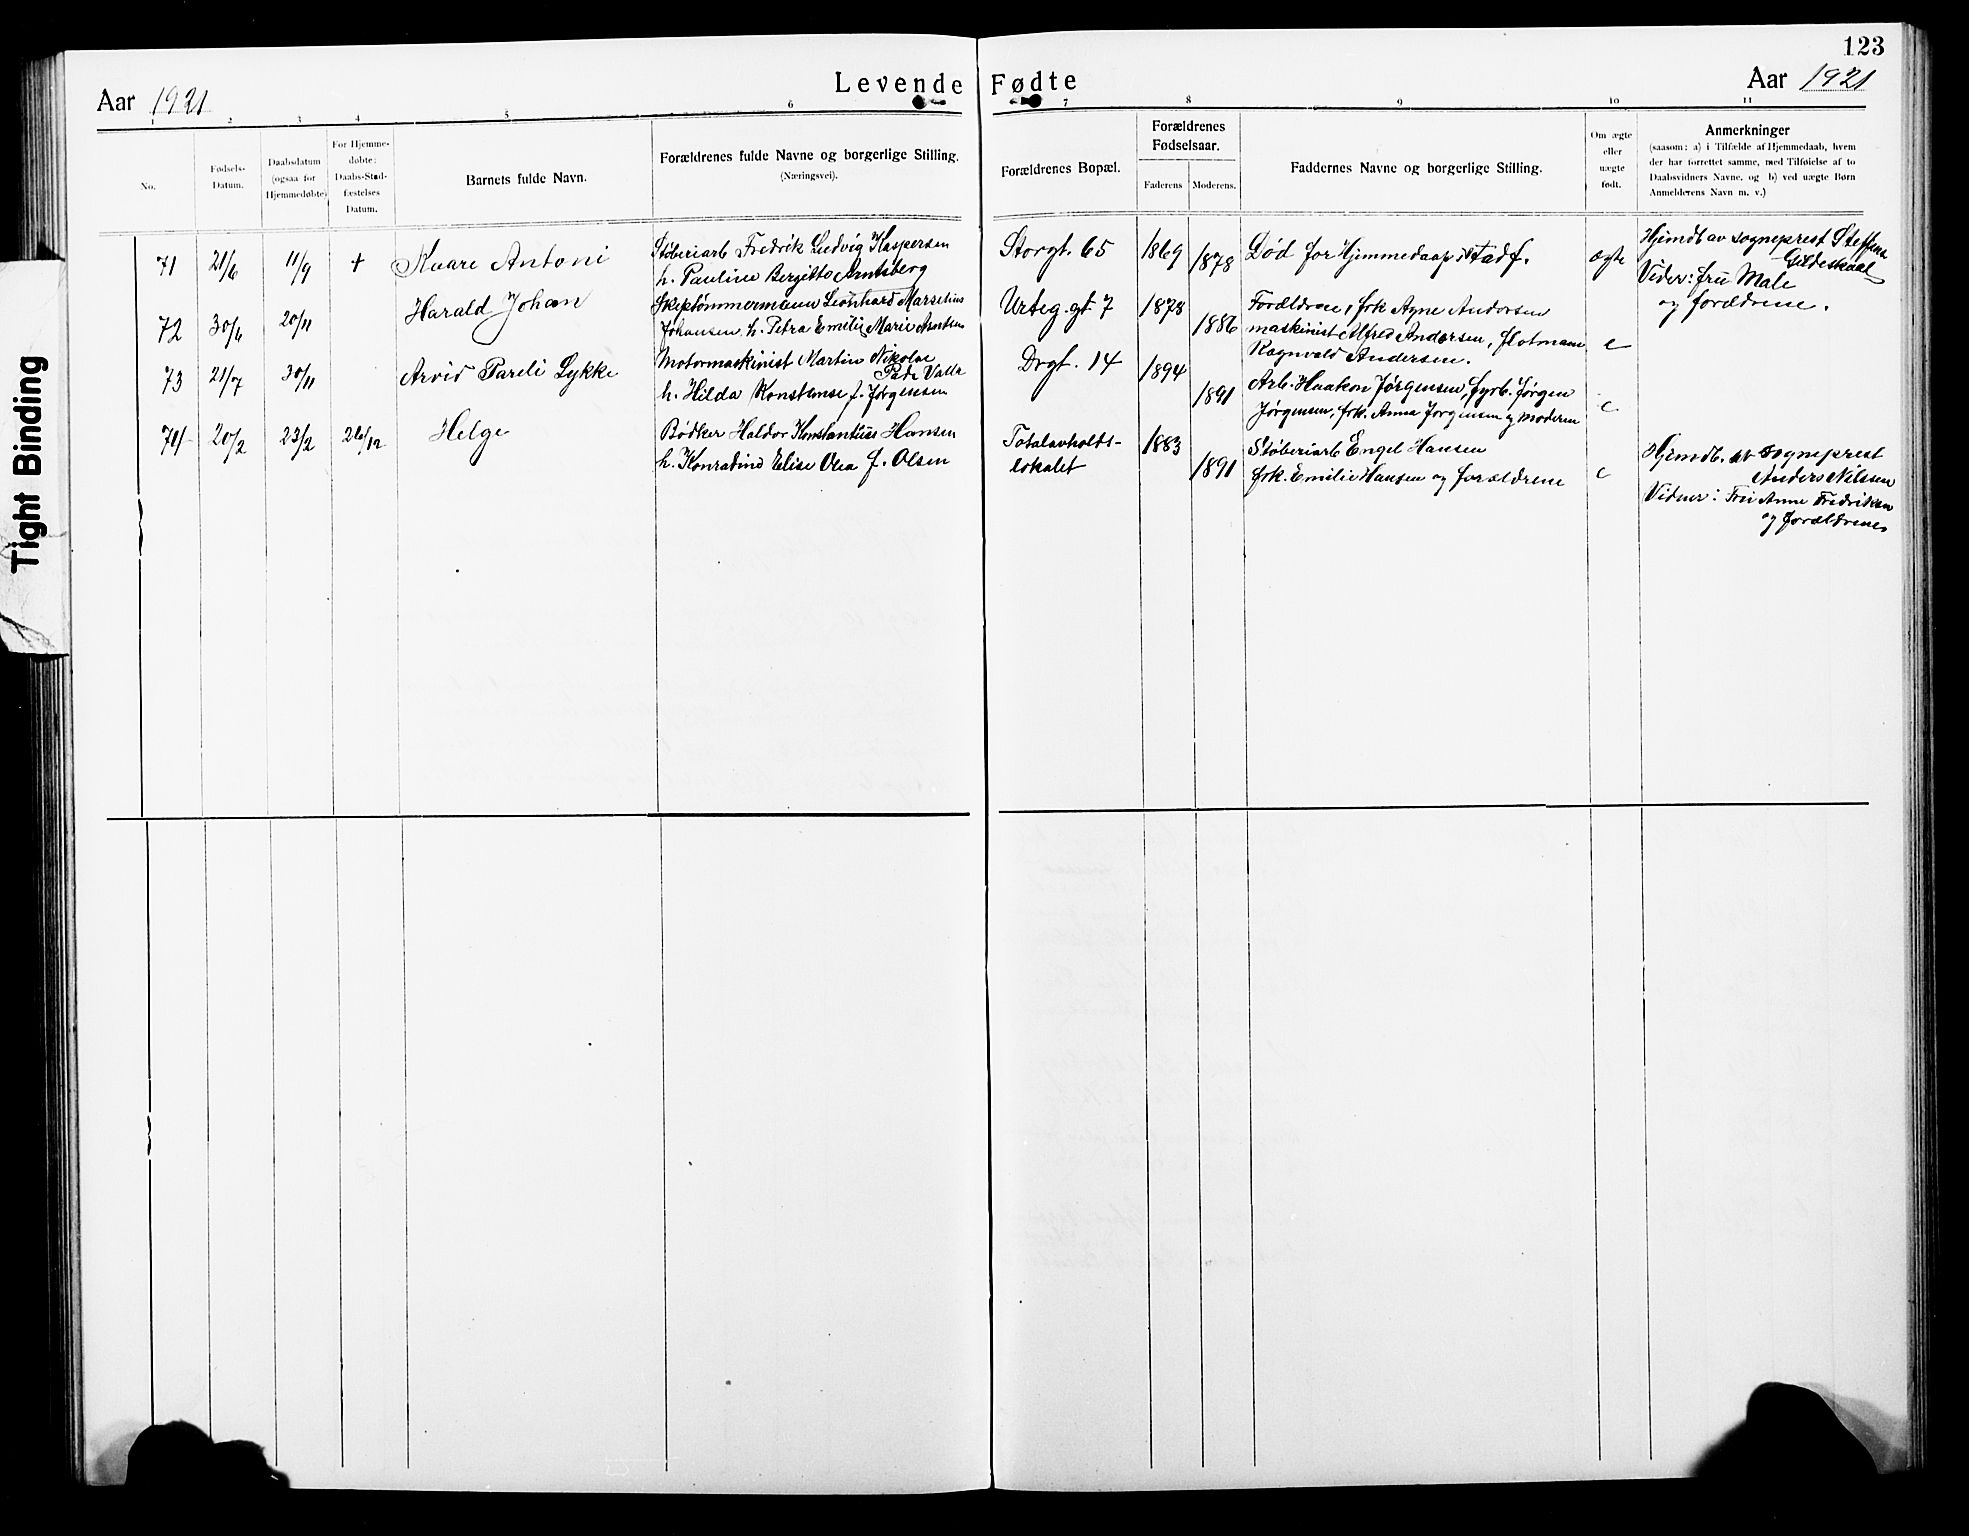 123
Levende Fødte
Aar 1921
Aar 1921
1 2 3 4 5 6 7 8 9 10 11
No.
Fødsels-
Datum.
Daabsdatum
(ogsaa for
Hjemmedøbte)
For Hjemme-
døbte:
Daabs-Stad-
fæstelses
Datum.
Barnets fulde Navn.
Forældrenes fulde Navne og borgerlige Stilling.
(Næringsvei).
Forældrenes Bopæl.
Forældrenes
Fødselsaar.
Faderens
Moderens.
Faddernes Navne og borgerlige Stilling.
Om ægte
eller
uægte
født.
Anmerkninger
(saasom: a) i Tilfælde af Hjemmedaab, hvem
der har forrettet samme, med Tilføielse af to
Daabsvidners Navne, og b) ved uægte Børn
Anmelderens Navn m. v.)
71 21/6 11/9 + Kaare Antoni
Støberiarb Fredrik Ludvig Kaspersen
h. Pauline Bergitte Arntsberg
Storgt. 65 1869 1878
Død for Hjemmedaap stadf.
ægte
Hjemdb av sogneprest Steffens
Gildeskaal
Vidner: fru Male
og forældrene.
72 30/6 20/11 Harald Johan
Skiptømmermann Leonhard Marselius
Johansen, h. Petra Emilie Marie Arntsen
Urteg. gt 7 1878 1886
Forældrene, frk Agne Andersen
maskinist Alfred Andersen, flotmann
Ragnvald Andersen.
e
73 21/7 30/11 Arvid Pareli Lykke
Motormaskinist Martin Nikolai
Valla
h. Hilda Konstanse f. Jørgensen
Drgt. 14 1894 1891
Arb. Haakon Jørgensen, fyrb. Jørgen
Jørgensen, frk. Anna Jørgensen og moderen
e
74 20/2 23/2 26/12 Helge
Bødker Haldor Konstantius Hansen
h. Konradine Elise Olea f. Olsen
Totalavholds-
lokalet
1883 1891
Støberiarb Engel Hansen
frk. Emilie Hansen og forældrene
e
Hjemdb. av sogneprest
Anders Nilssen
Vidner: Fru Anne Fredriksen
og forældrene
Tight Binding